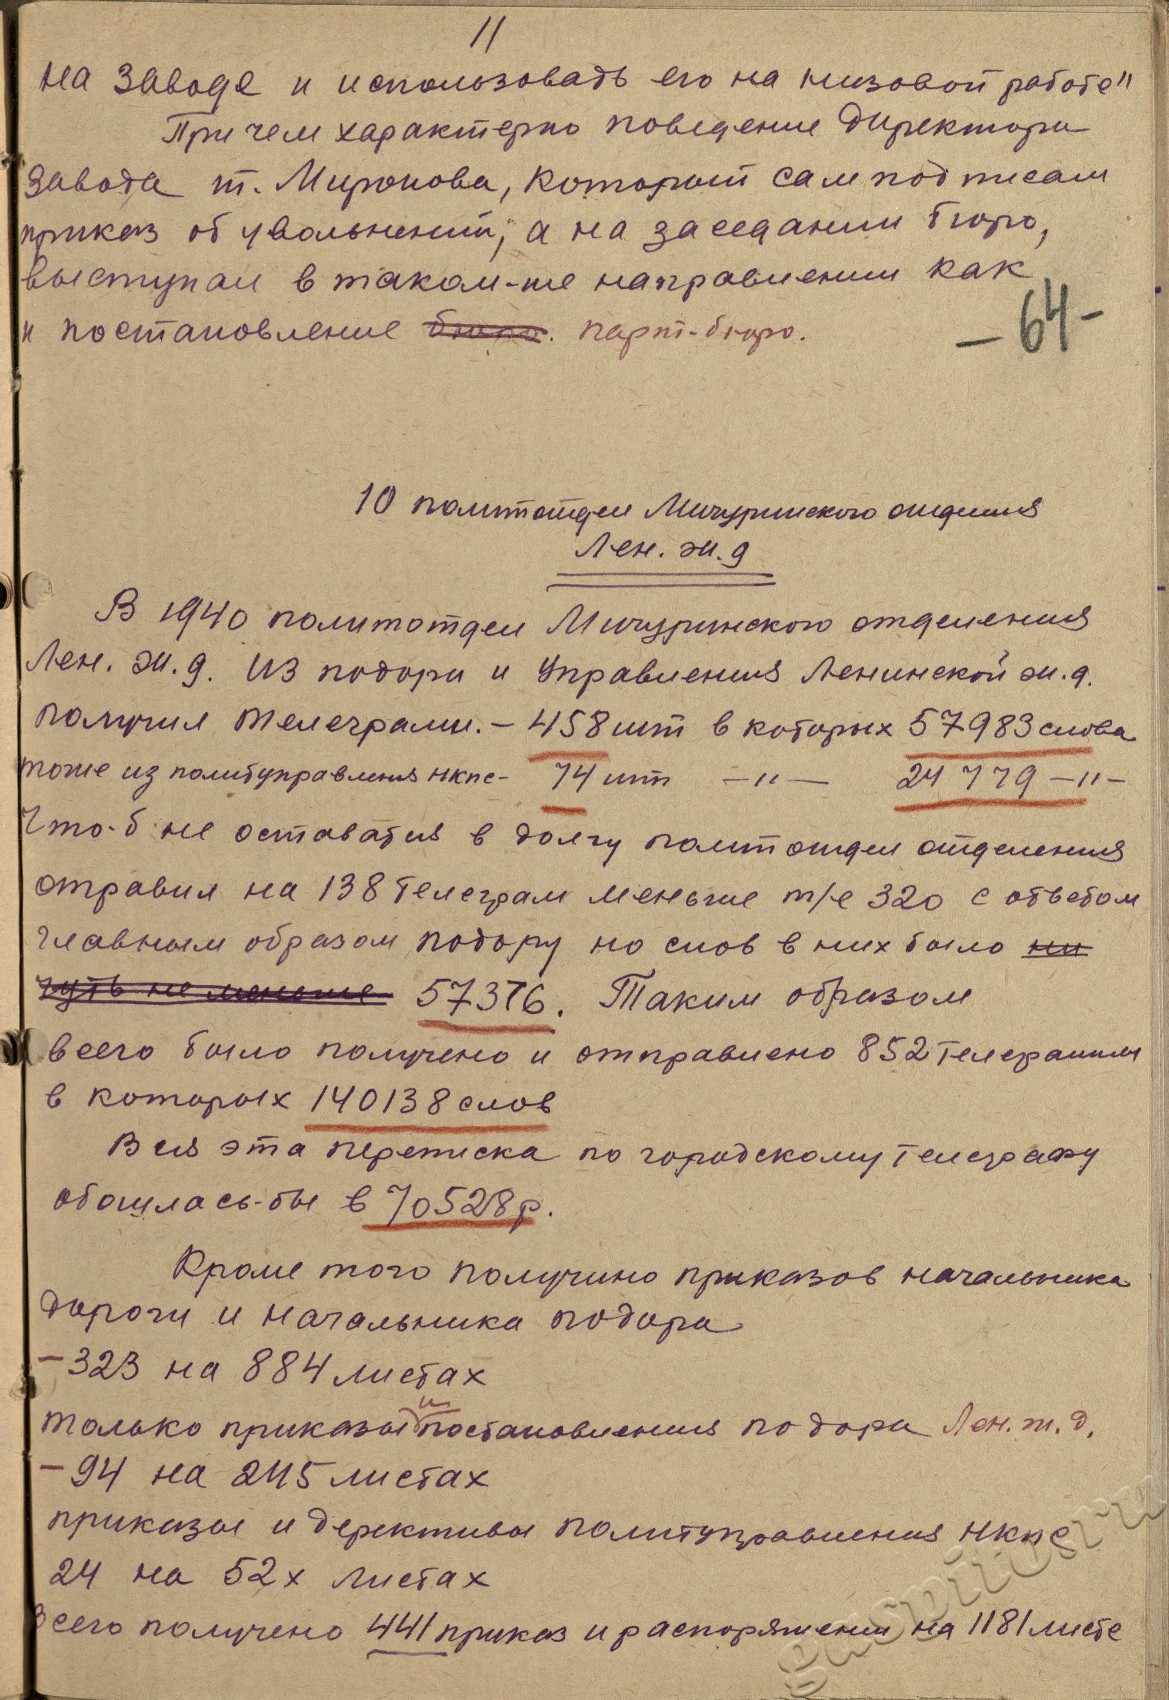 11
на заводе и использовать его на низовой работе"
Причем характерно поведение директора
завода т. Миронова, который сам подписал
приказ об увольнений, а на заседании бюро,
выступал в таком-же направлении как
и постановление бюро. парт-бюро.
-64-
10 политотдел Мичуринского отделения
Лен. ж.д
В 1940 политотдел Мичуринского отделения
Лен. ж.д. из подора и Управления Ленинской ж.д.
получил телеграмм. - 458 шт в которых 57983 слова
тоже из политуправления НКПС- 74 шт —"— 24 779 —"—
Что-б не остават��я в долгу политотдел отделения
отравил на 138 телеграм меньше т/е 320 с ответом
главным образом подору но слов в них было ни
чуть не меньше 57376. Таким образом
всего было получено и отправлено 852 телеграммы
в которых 140138 слов
Вся эта переписка по городскому телеграфу
обошлась-бы в 70528 р.
Кроме того получино приказов начальника
дороги и начальника подора
-323 на 884 листах
только приказы и постановления подора Лен. ж.д.
-94 на 245 листах
приказы и дерективы политуправления НКПС
24 на 52х листах
Всего получено 441 приказ и распоряжении на 1181 листе
gaspito.ru